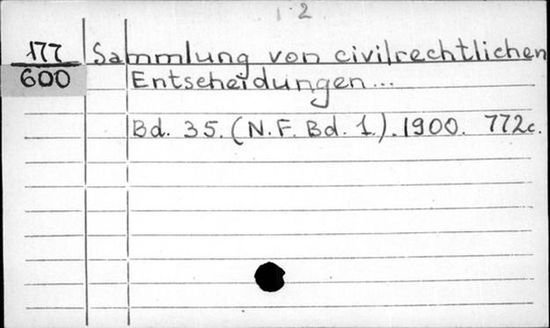 2
177 Sammlung von civilrechtlichen
600 Entscheidungen...
Bd. 35. (N.F. Bd. 1.). 1900. 772c.